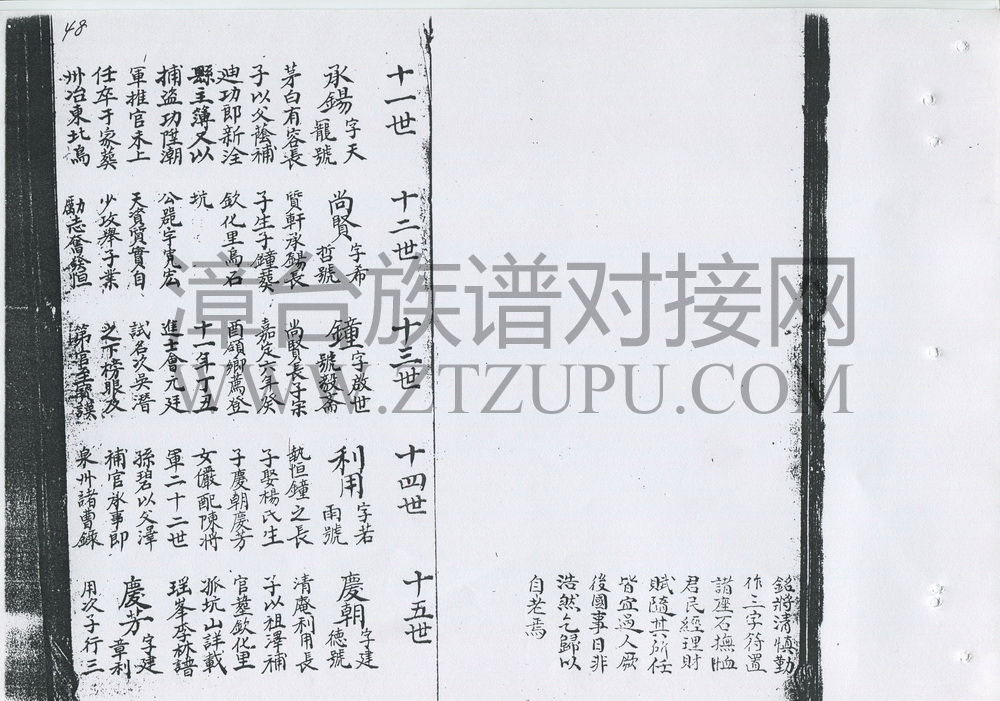 48
銘將清慎勤
作三字符置
諸座右撫恤
君民經理財
賦隨其所任
皆宜過人厥
後國事日非
浩然乞歸以
自老焉
十一世
承錫 字天
寵號
茅白有容長
子以父蔭補
迪功郎新淦
縣主簿又以
捕盜功陞潮
軍推官未上
任卒于家葬
州治東北塢
十二世
尚賢 字希
哲號
質軒承錫長
子生子鐘葬
欽化里烏石
坑
公器宇寬宏
天資質實自
少攻舉子業
勵志奮發恒
十三世
鐘 字啟世
號毅齋
尚賢長子宋
嘉定六年癸
酉領鄉薦登
十一年丁丑
進士會元廷
試名次吳潛
之下榜眼及
第官至
十四世
利用 字若
雨號
執恒鐘之長
子娶楊氏生
子慶朝慶芳
女儼配陳將
軍二十二世
孫碧以父澤
補官承事郎
泉州諸曹錄
十五世
慶朝 字建
德號
清庵利用長
子以祖澤補
官葬欽化里
孤坑山詳載
瑤峯李林譜
慶芳 字建
章利
用次子行三
漳台族谱对接网
WWW.ZTZUPU.COM